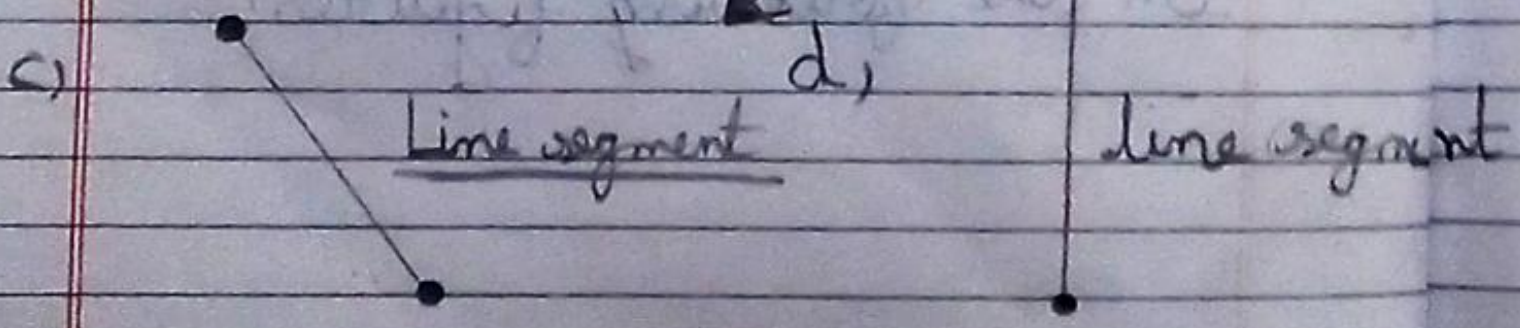 c) Line segment
d, line segment